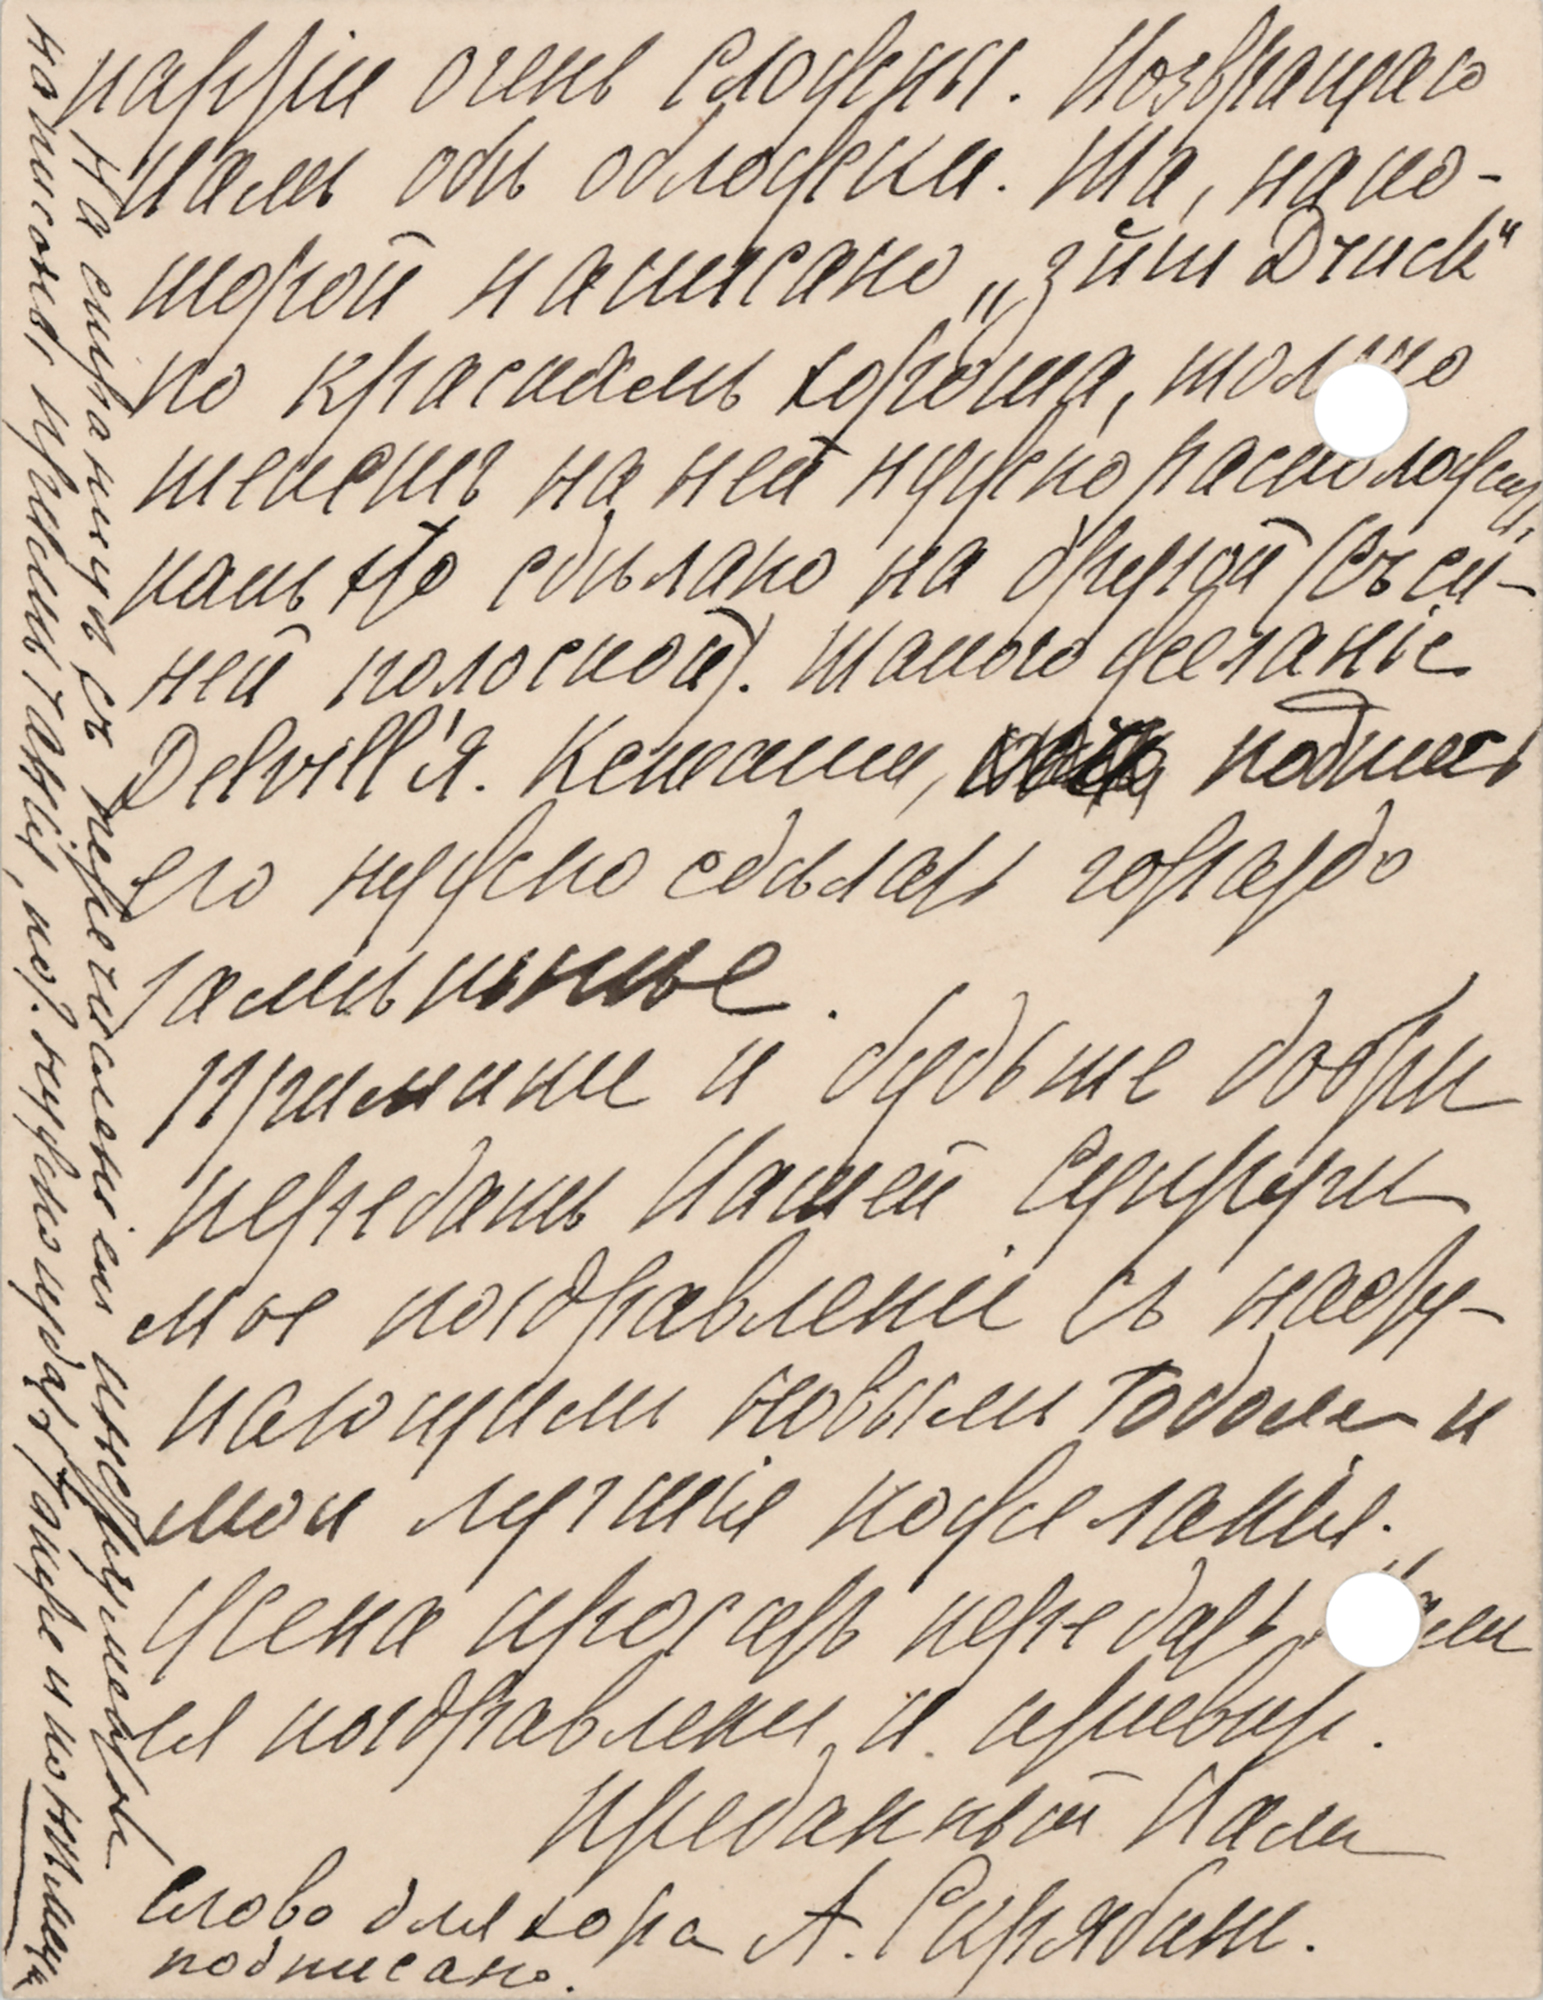 партіи очень сложны. Возвращаю
Вамъ обѣ обложки. Та, на ко-
торой написано „zum Druck“
по краскамъ хороша, только
текстъ на ней нужно расположить,
какъ это сдѣлано на другой (съ си-
ней полоской). Таково желаніе
Delvill'я. Кстати, подпись
его нужно сдѣлать гораздо
замѣтнѣе.
Примите и будьте добры
передать Вашей супругѣ
мое поздравленіе съ насту-
пающимъ новымъ Годомъ и
мои лучшія пожеланія.
Жена проситъ передать Вамъ
ея поздравленія и привѣтъ.
Преданный Вамъ
А. Скрябинъ.
Слово для хора
подписано.
На страницѣ съ перечисленіемъ инструментовъ
написанъ нужно издать также и